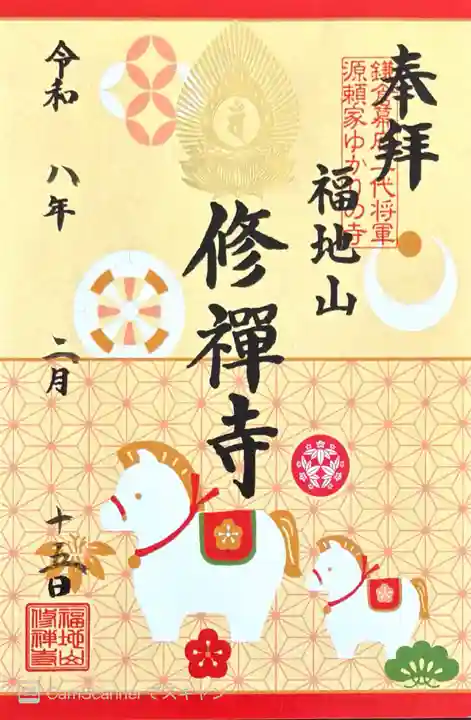 奉拝
鎌倉幕府二代将軍
源頼家ゆかりの寺
福地山
修禪寺
令和 八年 二月 十五日
福地山
修禅寺
CamScannerでスキャン